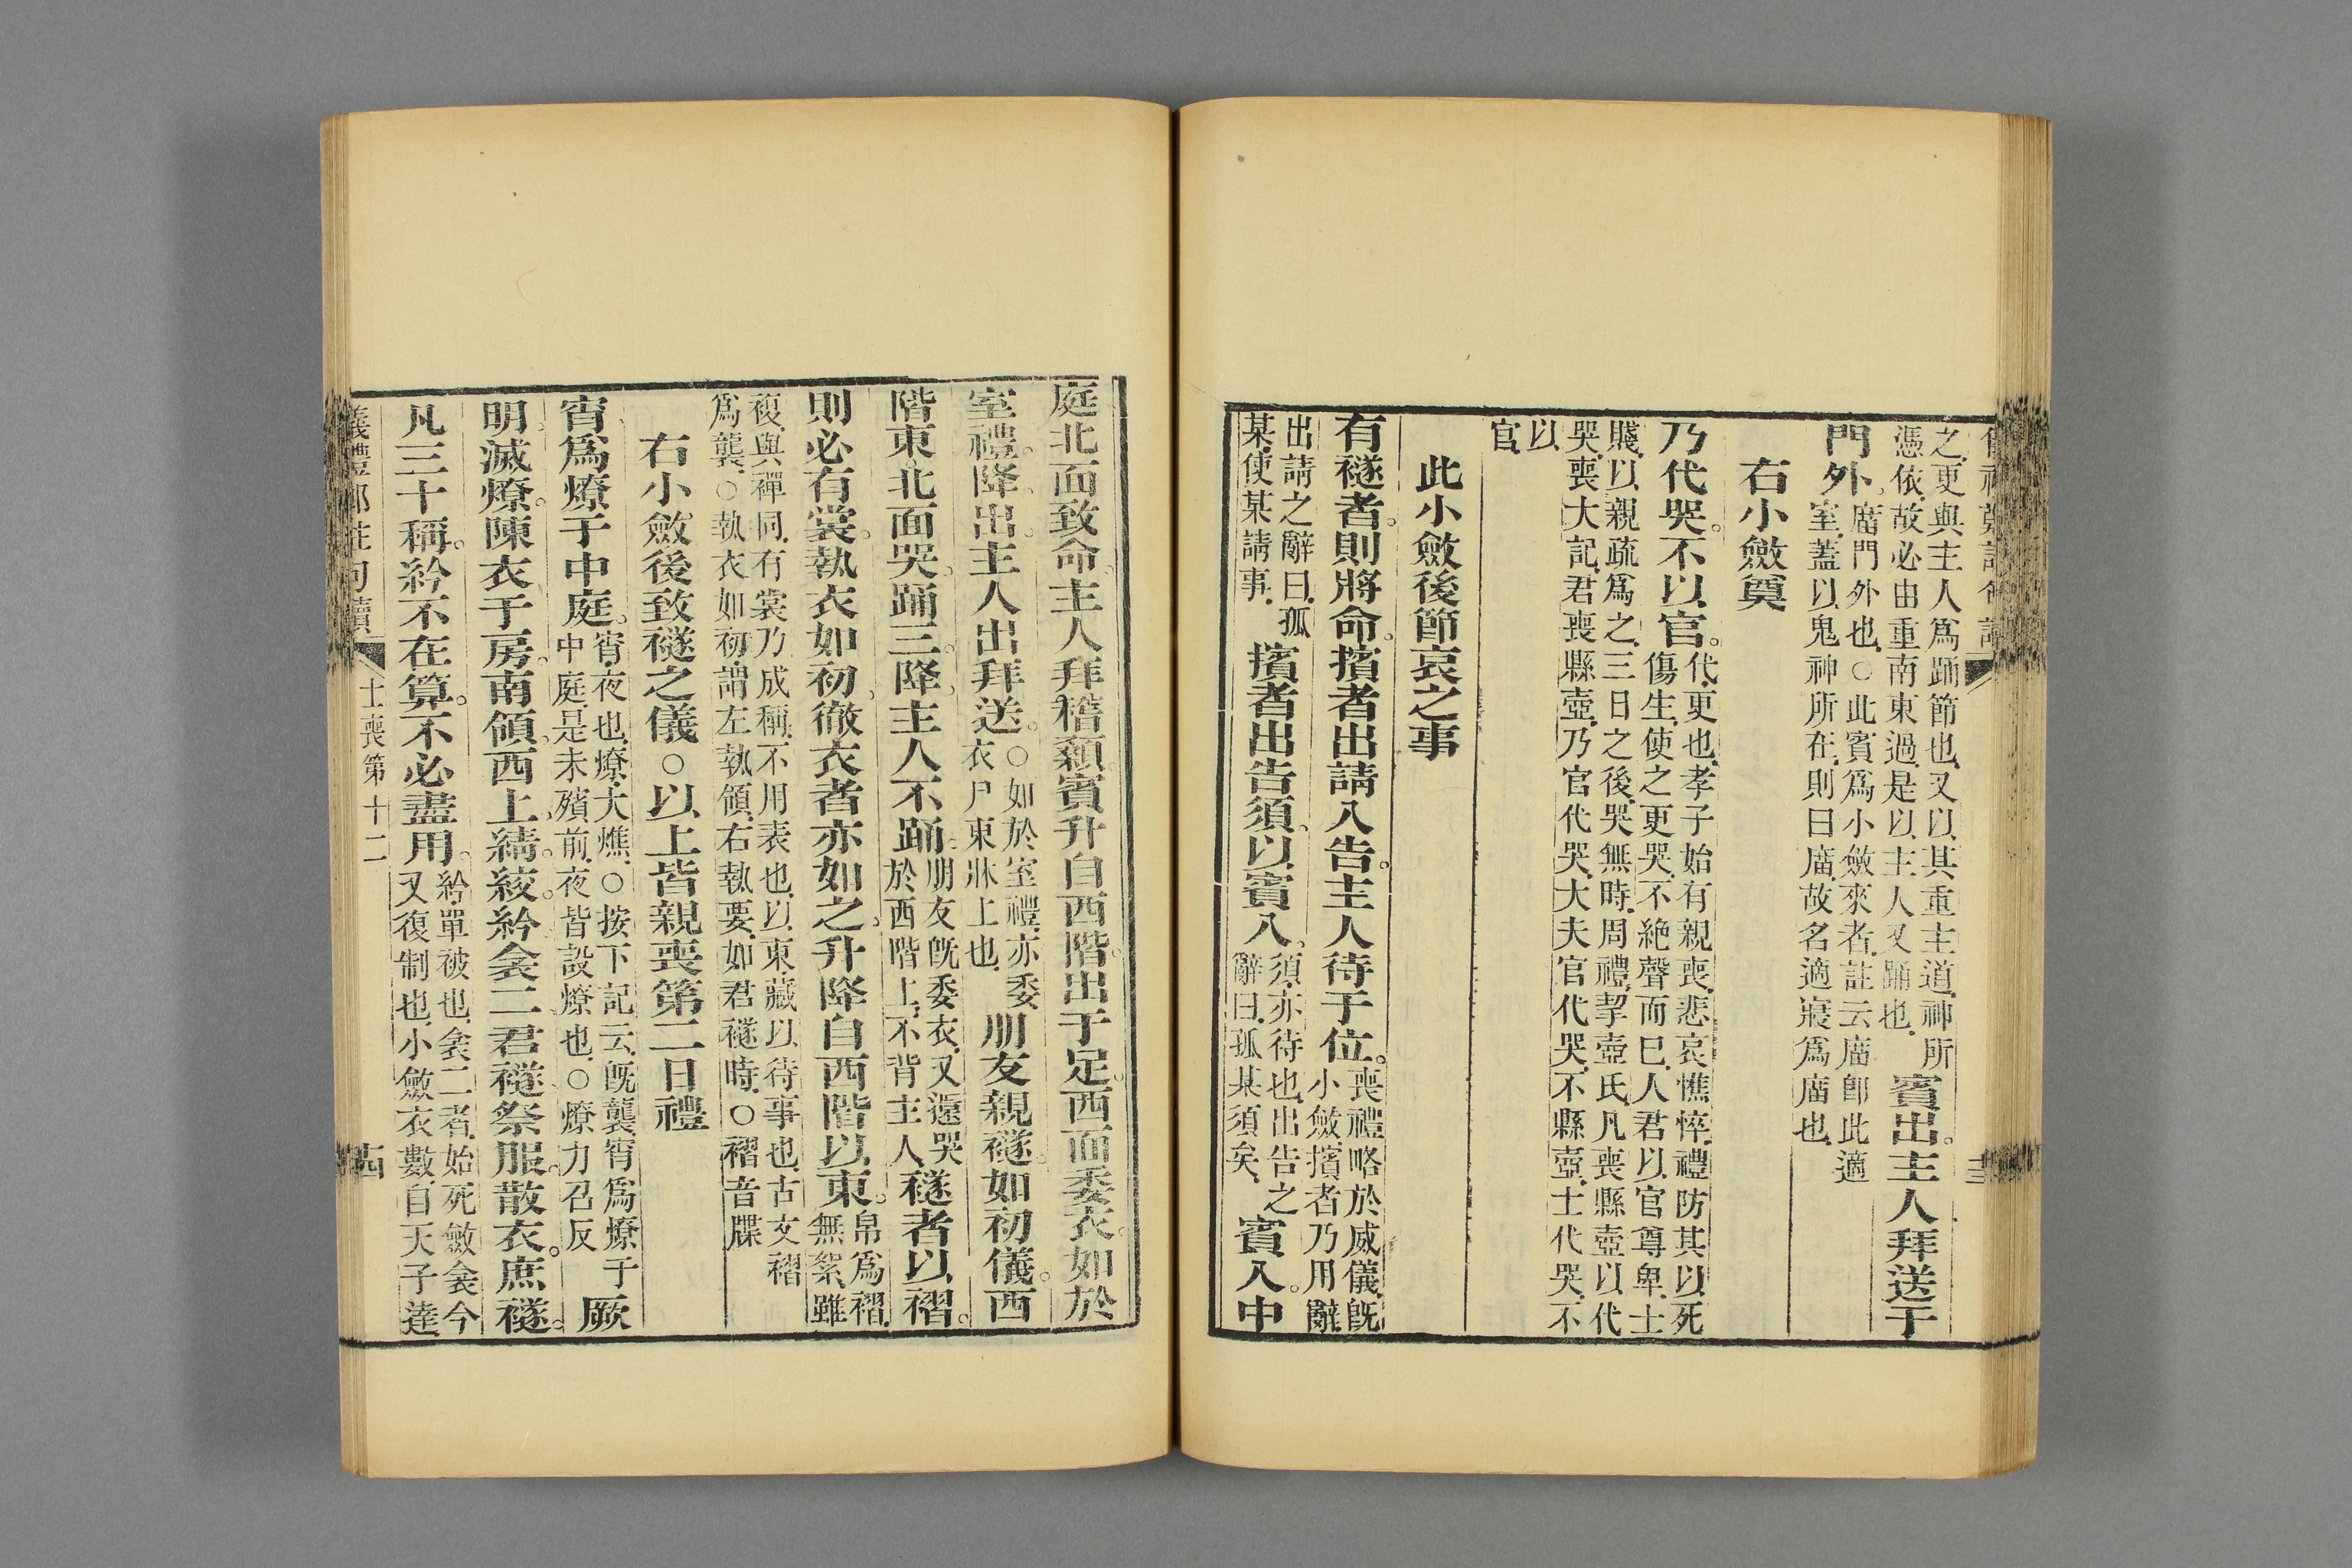 之更與主人爲踊節也又以其重主道神所
憑依故必由重南東過是以主人又踊也
賓出。主人拜送于
門外。
廟門外也○此賓爲小斂來者註云廟即此適
室蓋以鬼神所在則曰廟故名適寢爲廟也
右小斂奠
乃代哭。不以官。
代更也孝子始有親喪悲哀憔悴禮防其以死
傷生使之更哭不絶聲而已人君以官尊卑士
賤以親疏爲之三日之後哭無時周禮挈壺氏凡喪縣壺以代
哭喪大記君喪縣壺乃官代哭大夫官代哭不縣壺士代哭不
以
官
此小斂後節哀之事
有襚者。則將命。擯者出請入告。主人待于位。
喪禮略於威儀既
小斂擯者乃用辭
出請之辭曰孤
某使某請事
擯者出告須。以賓入。
須亦待也出告之
辭曰孤某須矣
賓入。中
庭北面致命。主人拜稽顙。賓升自西階。出于足。西面委衣。如於
室禮。降。出。主人出拜送。
○如於室禮亦委
衣尸東牀上也
朋友親襚。如初儀。西
階東。北面哭。踊三。降。主人不踊。
朋友既委衣又還哭
於西階上不背主人
襚者以褶。
則必有裳。執衣如初。徹衣者亦如之。升降自西階以東。
帛爲褶
無絮雖
複與禪同有裳乃成稱不用表也以東藏以待事也古文褶
爲襲○執衣如初謂左執領右執要如君襚時○褶音牒
右小斂後致襚之儀○以上皆親喪第二日禮
宵爲燎于中庭。
宵夜也燎大燋○按下記云既襲宵爲燎于
中庭是未殯前夜皆設燎也○燎力召反
厥
明滅燎。陳衣于房。南領。西上。綪。絞。紟。衾二。君襚。祭服。散衣。庶襚。
凡三十稱。紟不在算。不必盡用。
紟單被也衾二者始死斂衾今
又復制也小斂衣數自天子達
儀禮鄭註句讀
士喪第十二